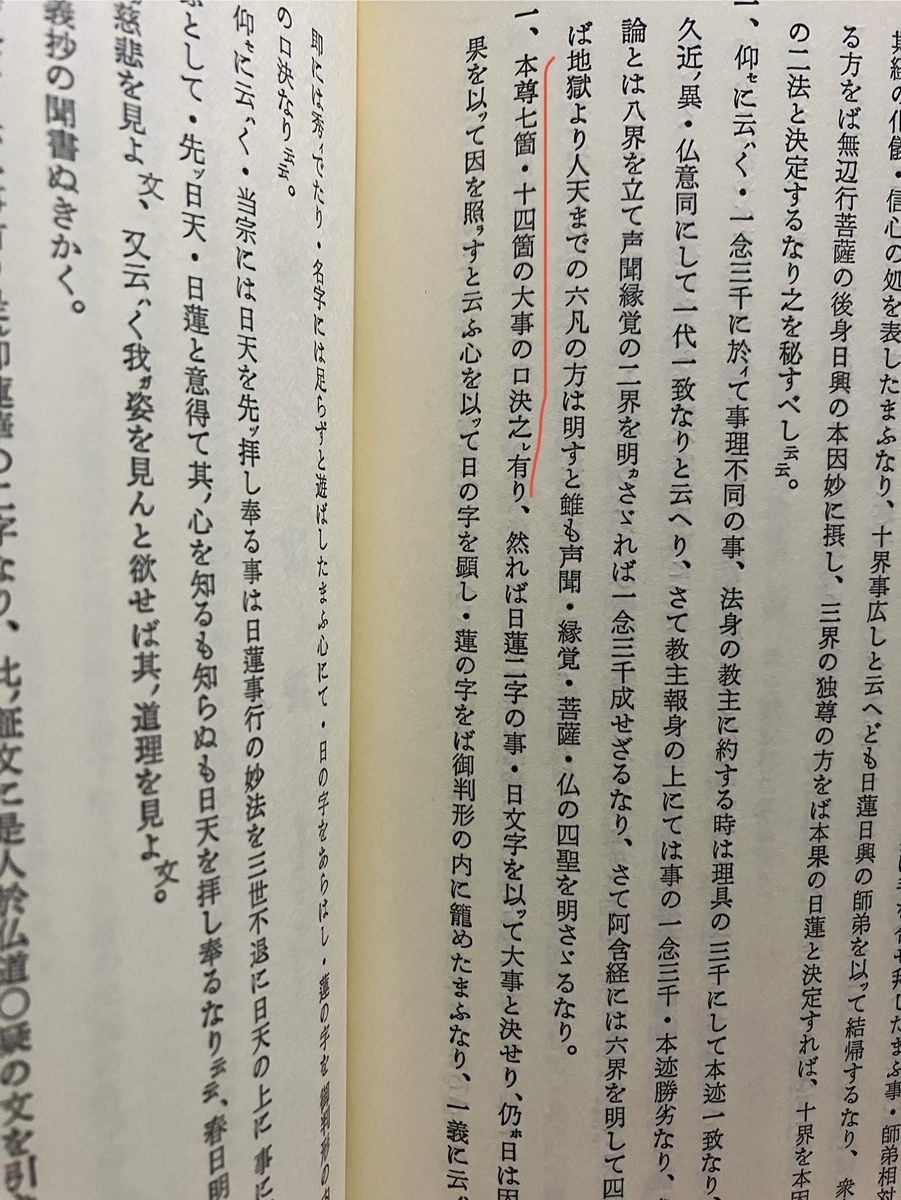 其経の
る方をば無辺行菩薩の後身日興の本因妙に摂し、三界の独尊の方をば本果の日蓮と決定すれば、十界を本因
の二法と決定するなり之を秘すべし云云。
一、仰セに云ハく・一念三千に於イて事理不同の事、法身の教主に約する時は理具の三千にして本迹一致なり、
久近ノ異・仏意同にして一代一致なりと云へり、さて教主報身の上にては事の一念三千・本迹勝劣なり、
論とは八界を立て声聞縁覚の二界を明カさゞれば一念三千成せざるなり、さて阿含経には六界を明して四
ば地獄より人天までの六凡の方は明すと雖も声聞・縁覚・菩薩・仏の四聖を明さゞるなり。
一、本尊七箇・十四箇の大事の口決之レ有り、然れば日蓮二字の事・日文字を以ッて大事と決せり、仍ホ日は因
果を以ッて因を照ラすと云ふ心を以ッて日の字を顕し・蓮の字をば御判形の内に籠めたまふなり、一義に云ハ
即には秀イでたり・名字には足らずと遊ばしたまふ心にて・日の字をあらはし・蓮の字を御判形の
の口決なり云云。
仰セに云ハく・当宗には日天を先ッ拝し奉る事は日蓮事行の妙法を三世不退に日天の上に事に
として・先ッ日天・日蓮と意得て其ノ心を知るも知らぬも日天を拝し奉るなり云云、春日明
慈悲を見よ文、又云ハく我ガ姿を見んと欲せば其ノ道理を見よ文。
義抄の聞書ぬきかく。
の二字なり、此ノ証文に是人於仏道〇疑の文を引